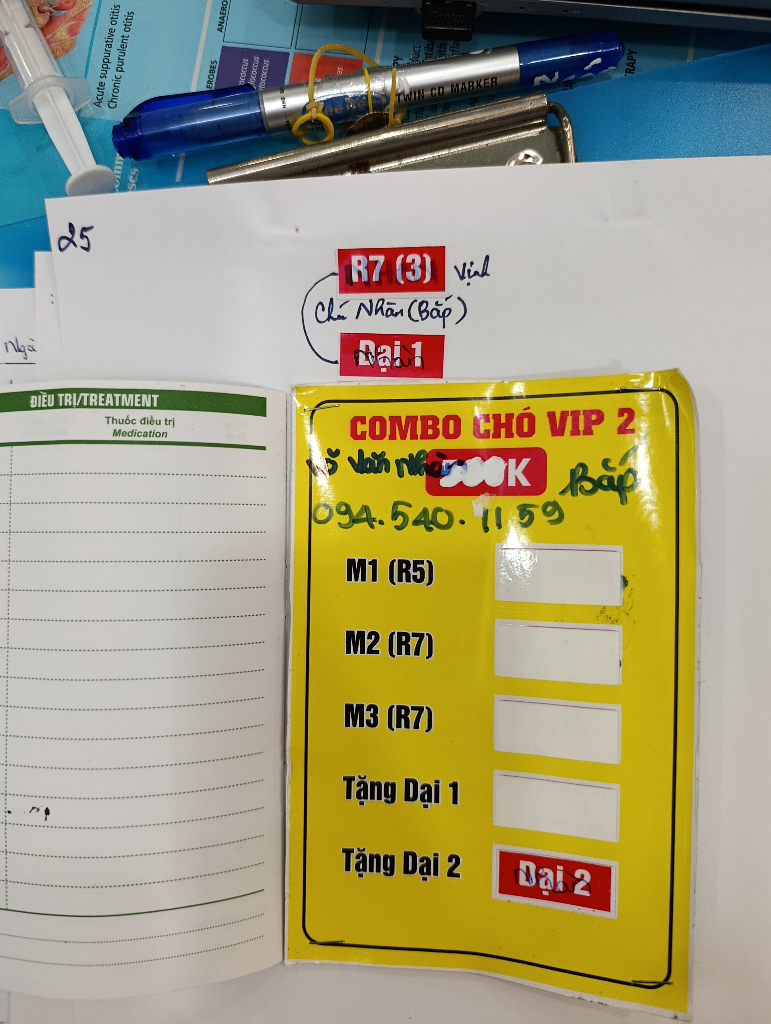 Acute suppurative otitis
Chronic purulent otitis
TWIN CD MARKER
25
R7 (3) Vịnh
Chú Nhân (Bắp)
Dại 1
Ngà
ĐIỀU TRỊ/TREATMENT
Thuốc điều trị
Medication
COMBO CHÓ VIP 2
Võ Văn Nhân K Bắp
094.540.1159
M1 (R5)
M2 (R7)
M3 (R7)
Tặng Dại 1
Tặng Dại 2 Dại 2